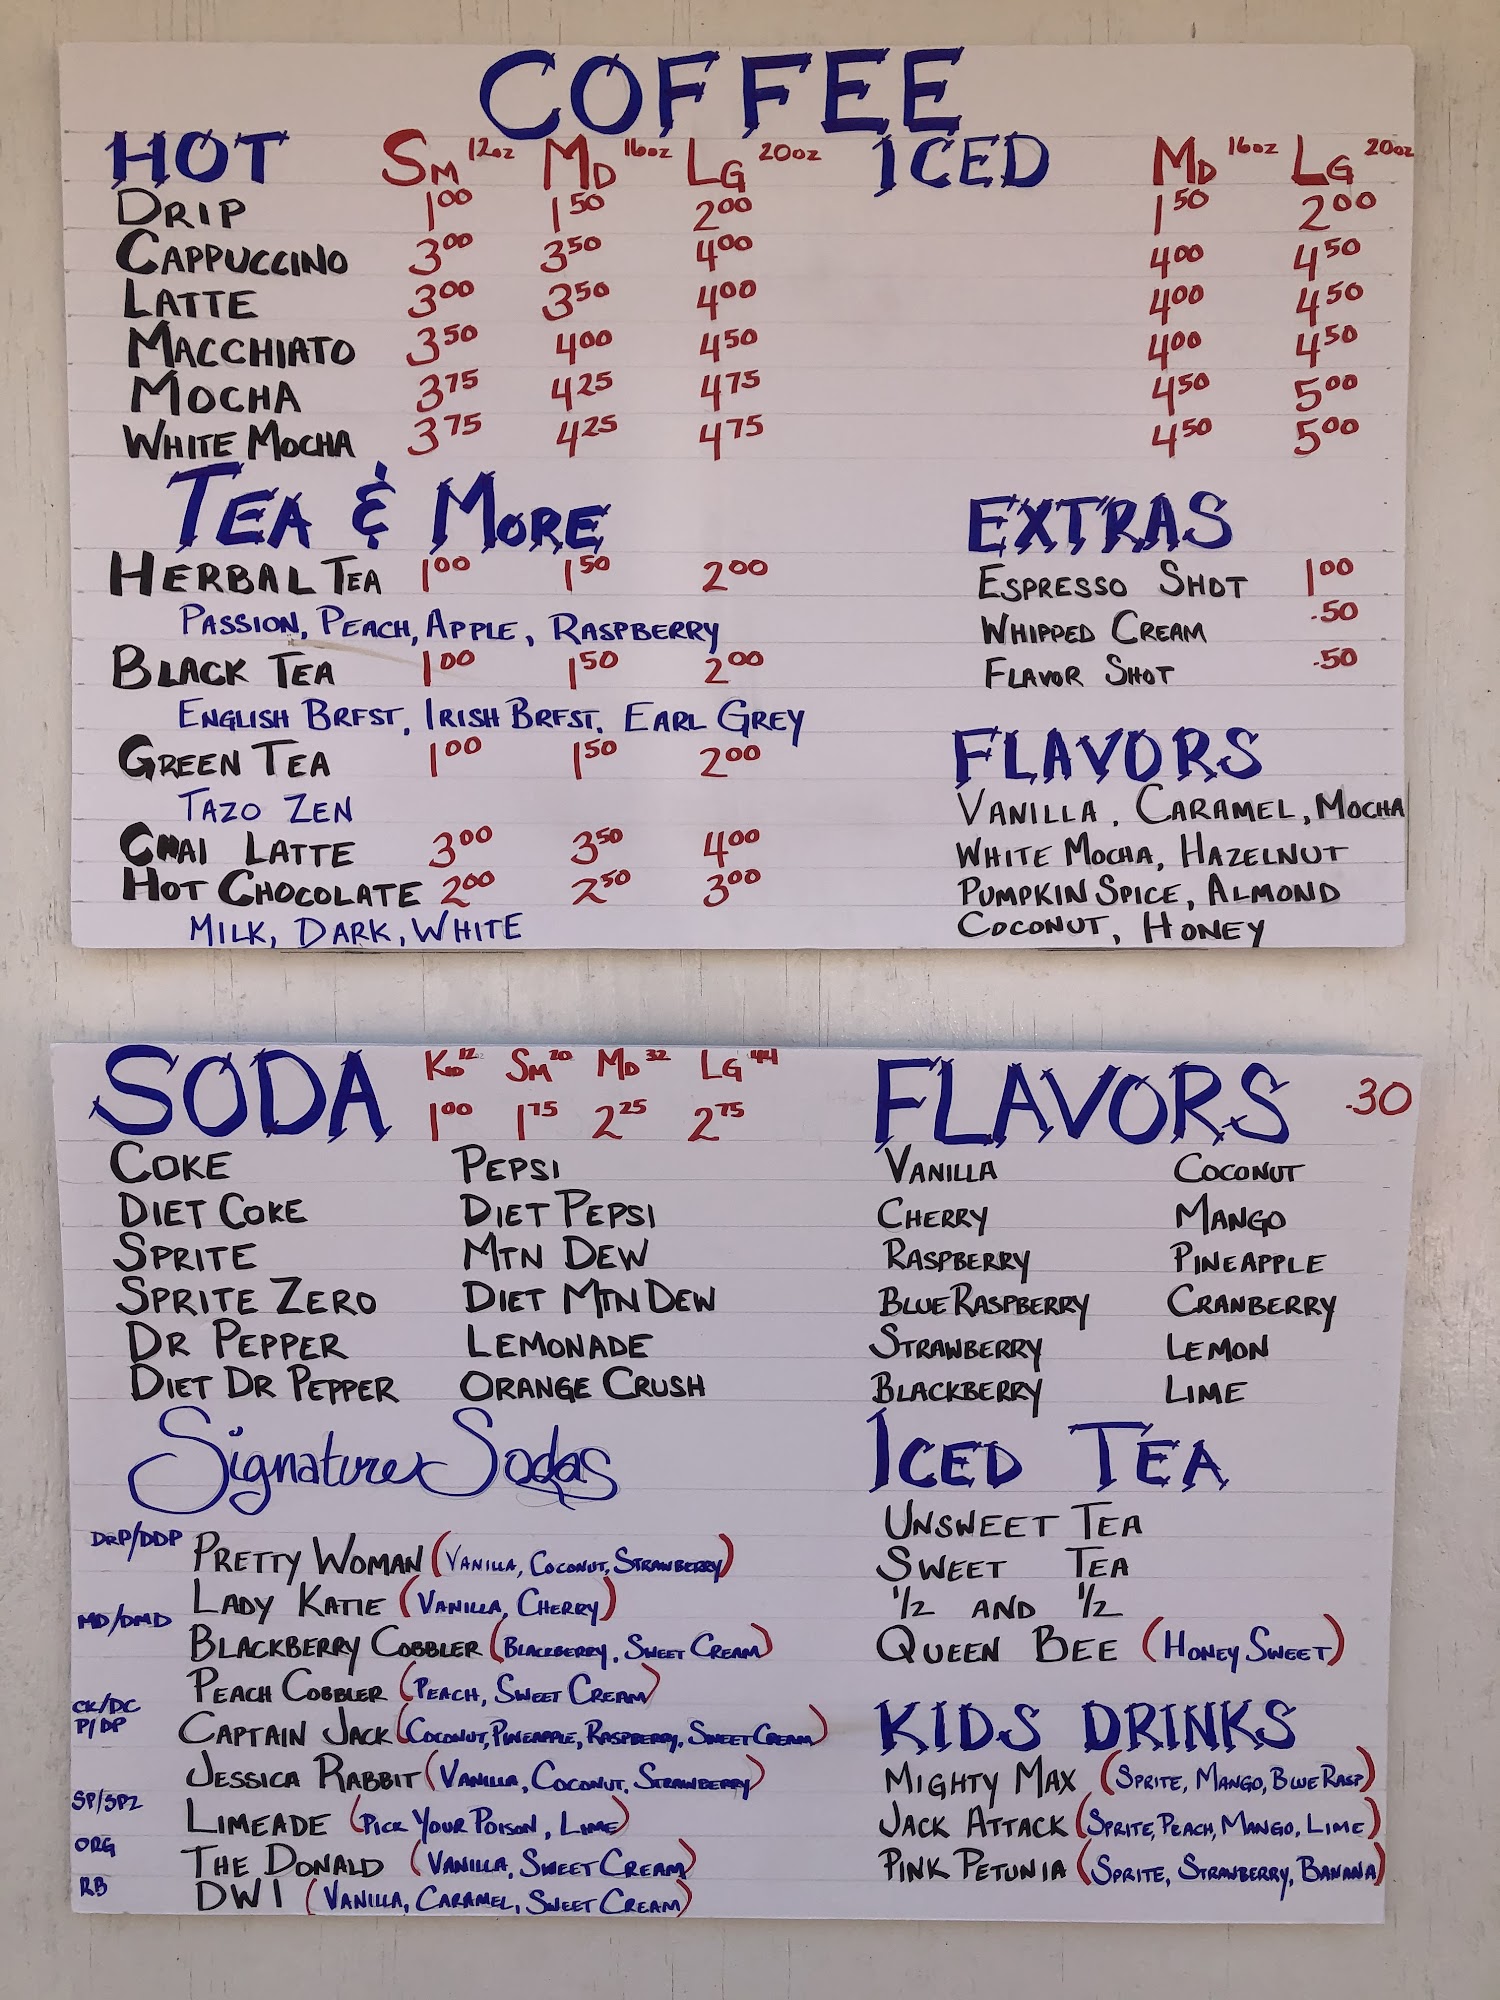 COFFEE
HOT SM 12oz MD 16oz LG 20oz ICED MD 16oz LG 20oz
DRIP 1.00 1.50 2.00 1.50 2.00
CAPPUCCINO 3.00 3.50 4.00 4.00 4.50
LATTE 3.00 3.50 4.00 4.00 4.50
MACCHIATO 3.50 4.00 4.50 4.00 4.50
MOCHA 3.75 4.25 4.75 4.50 5.00
WHITE MOCHA 3.75 4.25 4.75 4.50 5.00
TEA & MORE
HERBAL TEA 1.00 1.50 2.00
PASSION, PEACH, APPLE, RASPBERRY
BLACK TEA 1.00 1.50 2.00
ENGLISH BRFST, IRISH BRFST, EARL GREY
GREEN TEA 1.00 1.50 2.00
TAZO ZEN
CHAI LATTE 3.00 3.50 4.00
HOT CHOCOLATE 2.00 2.50 3.00
MILK, DARK, WHITE
EXTRAS
ESPRESSO SHOT 1.00
WHIPPED CREAM .50
FLAVOR SHOT .50
FLAVORS
VANILLA, CARAMEL, MOCHA
WHITE MOCHA, HAZELNUT
PUMPKIN SPICE, ALMOND
COCONUT, HONEY
SODA KD 12 SM 20 MD 32 LG 44
1.00 1.75 2.25 2.75
COKE PEPSI
DIET COKE DIET PEPSI
SPRITE MTN DEW
SPRITE ZERO DIET MTN DEW
DR PEPPER LEMONADE
DIET DR PEPPER ORANGE CRUSH
Signature Sodas
DRP/DDP PRETTY WOMAN (VANILLA, COCONUT, STRAWBERRY)
LADY KATIE (VANILLA, CHERRY)
MD/DMD BLACKBERRY COBBLER (BLACKBERRY, SWEET CREAM)
PEACH COBBLER (PEACH, SWEET CREAM)
CK/DC
P/DP CAPTAIN JACK (COCONUT, PINEAPPLE, RASPBERRY, SWEET CREAM)
JESSICA RABBIT (VANILLA, COCONUT, STRAWBERRY)
SP/SPZ LIMEADE (PICK YOUR POISON, LIME)
ORG THE DONALD (VANILLA, SWEET CREAM)
RB DWI (VANILLA, CARAMEL, SWEET CREAM)
FLAVORS .30
VANILLA COCONUT
CHERRY MANGO
RASPBERRY PINEAPPLE
BLUE RASPBERRY CRANBERRY
STRAWBERRY LEMON
BLACKBERRY LIME
ICED TEA
UNSWEET TEA
SWEET TEA
1/2 AND 1/2
QUEEN BEE (HONEY SWEET)
KIDS DRINKS
MIGHTY MAX (SPRITE, MANGO, BLUE RASP)
JACK ATTACK (SPRITE, PEACH, MANGO, LIME)
PINK PETUNIA (SPRITE, STRAWBERRY, BANANA)